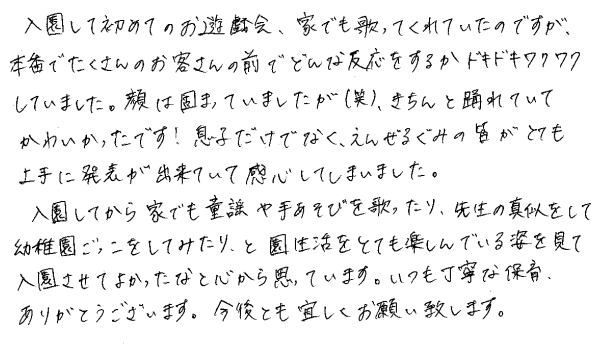 入園して初めてのお遊戯会、家でも歌ってくれていたのですが、
本番でたくさんのお客さんの前でどんな反応をするかドキドキワクワク
していました。顔は固まっていましたが(笑)、きちんと踊れていて
かわいかったです！息子だけでなく、えんぜるぐみの皆がとても
上手に発表が出来ていて感心してしまいました。
入園してから家でも童謡や手あそびを歌ったり、先生の真似をして
幼稚園ごっこをしてみたり、と園生活をとても楽しんでいる姿を見て
入園させてよかったなと心から思っています。いつも丁寧な保育、
ありがとうございます。今後とも宜しくお願い致します。